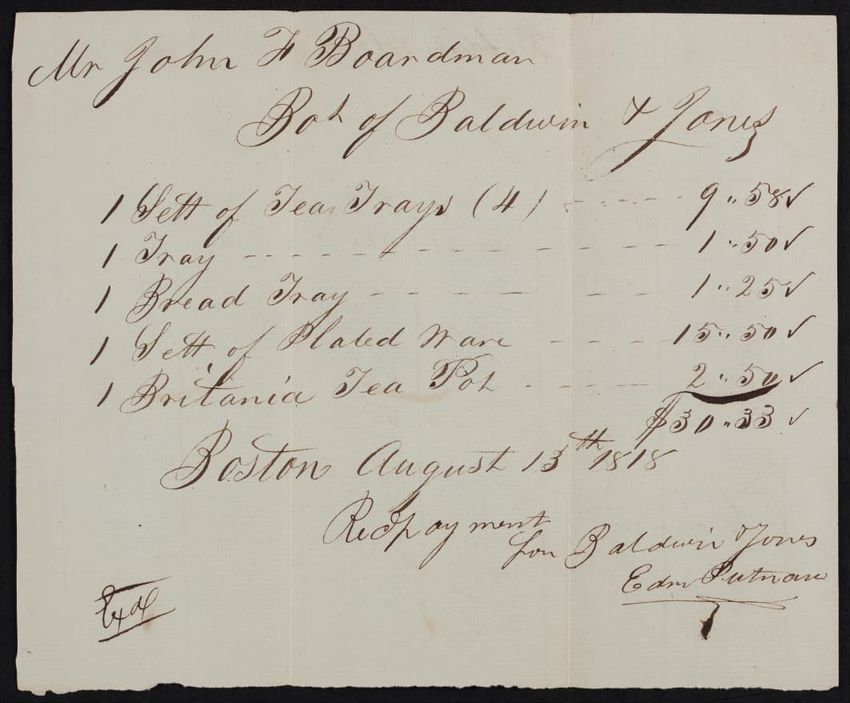 Mr John F Boardman
Bot of Baldwin & Jones
1 Sett of Tea Trays (4) - - - - - 9..58 ✓
1 Tray - - - - - - - - - - - 1..50 ✓
1 Bread Tray - - - - - - - 1..25 ✓
1 Sett of Plated Ware - - - - 15..50 ✓
1 Britania Tea Pot - - - - - 2..50 ✓
$30..33 ✓
Boston August 13th 1818
Recd payment
for Baldwin & Jones
Edm Putnam